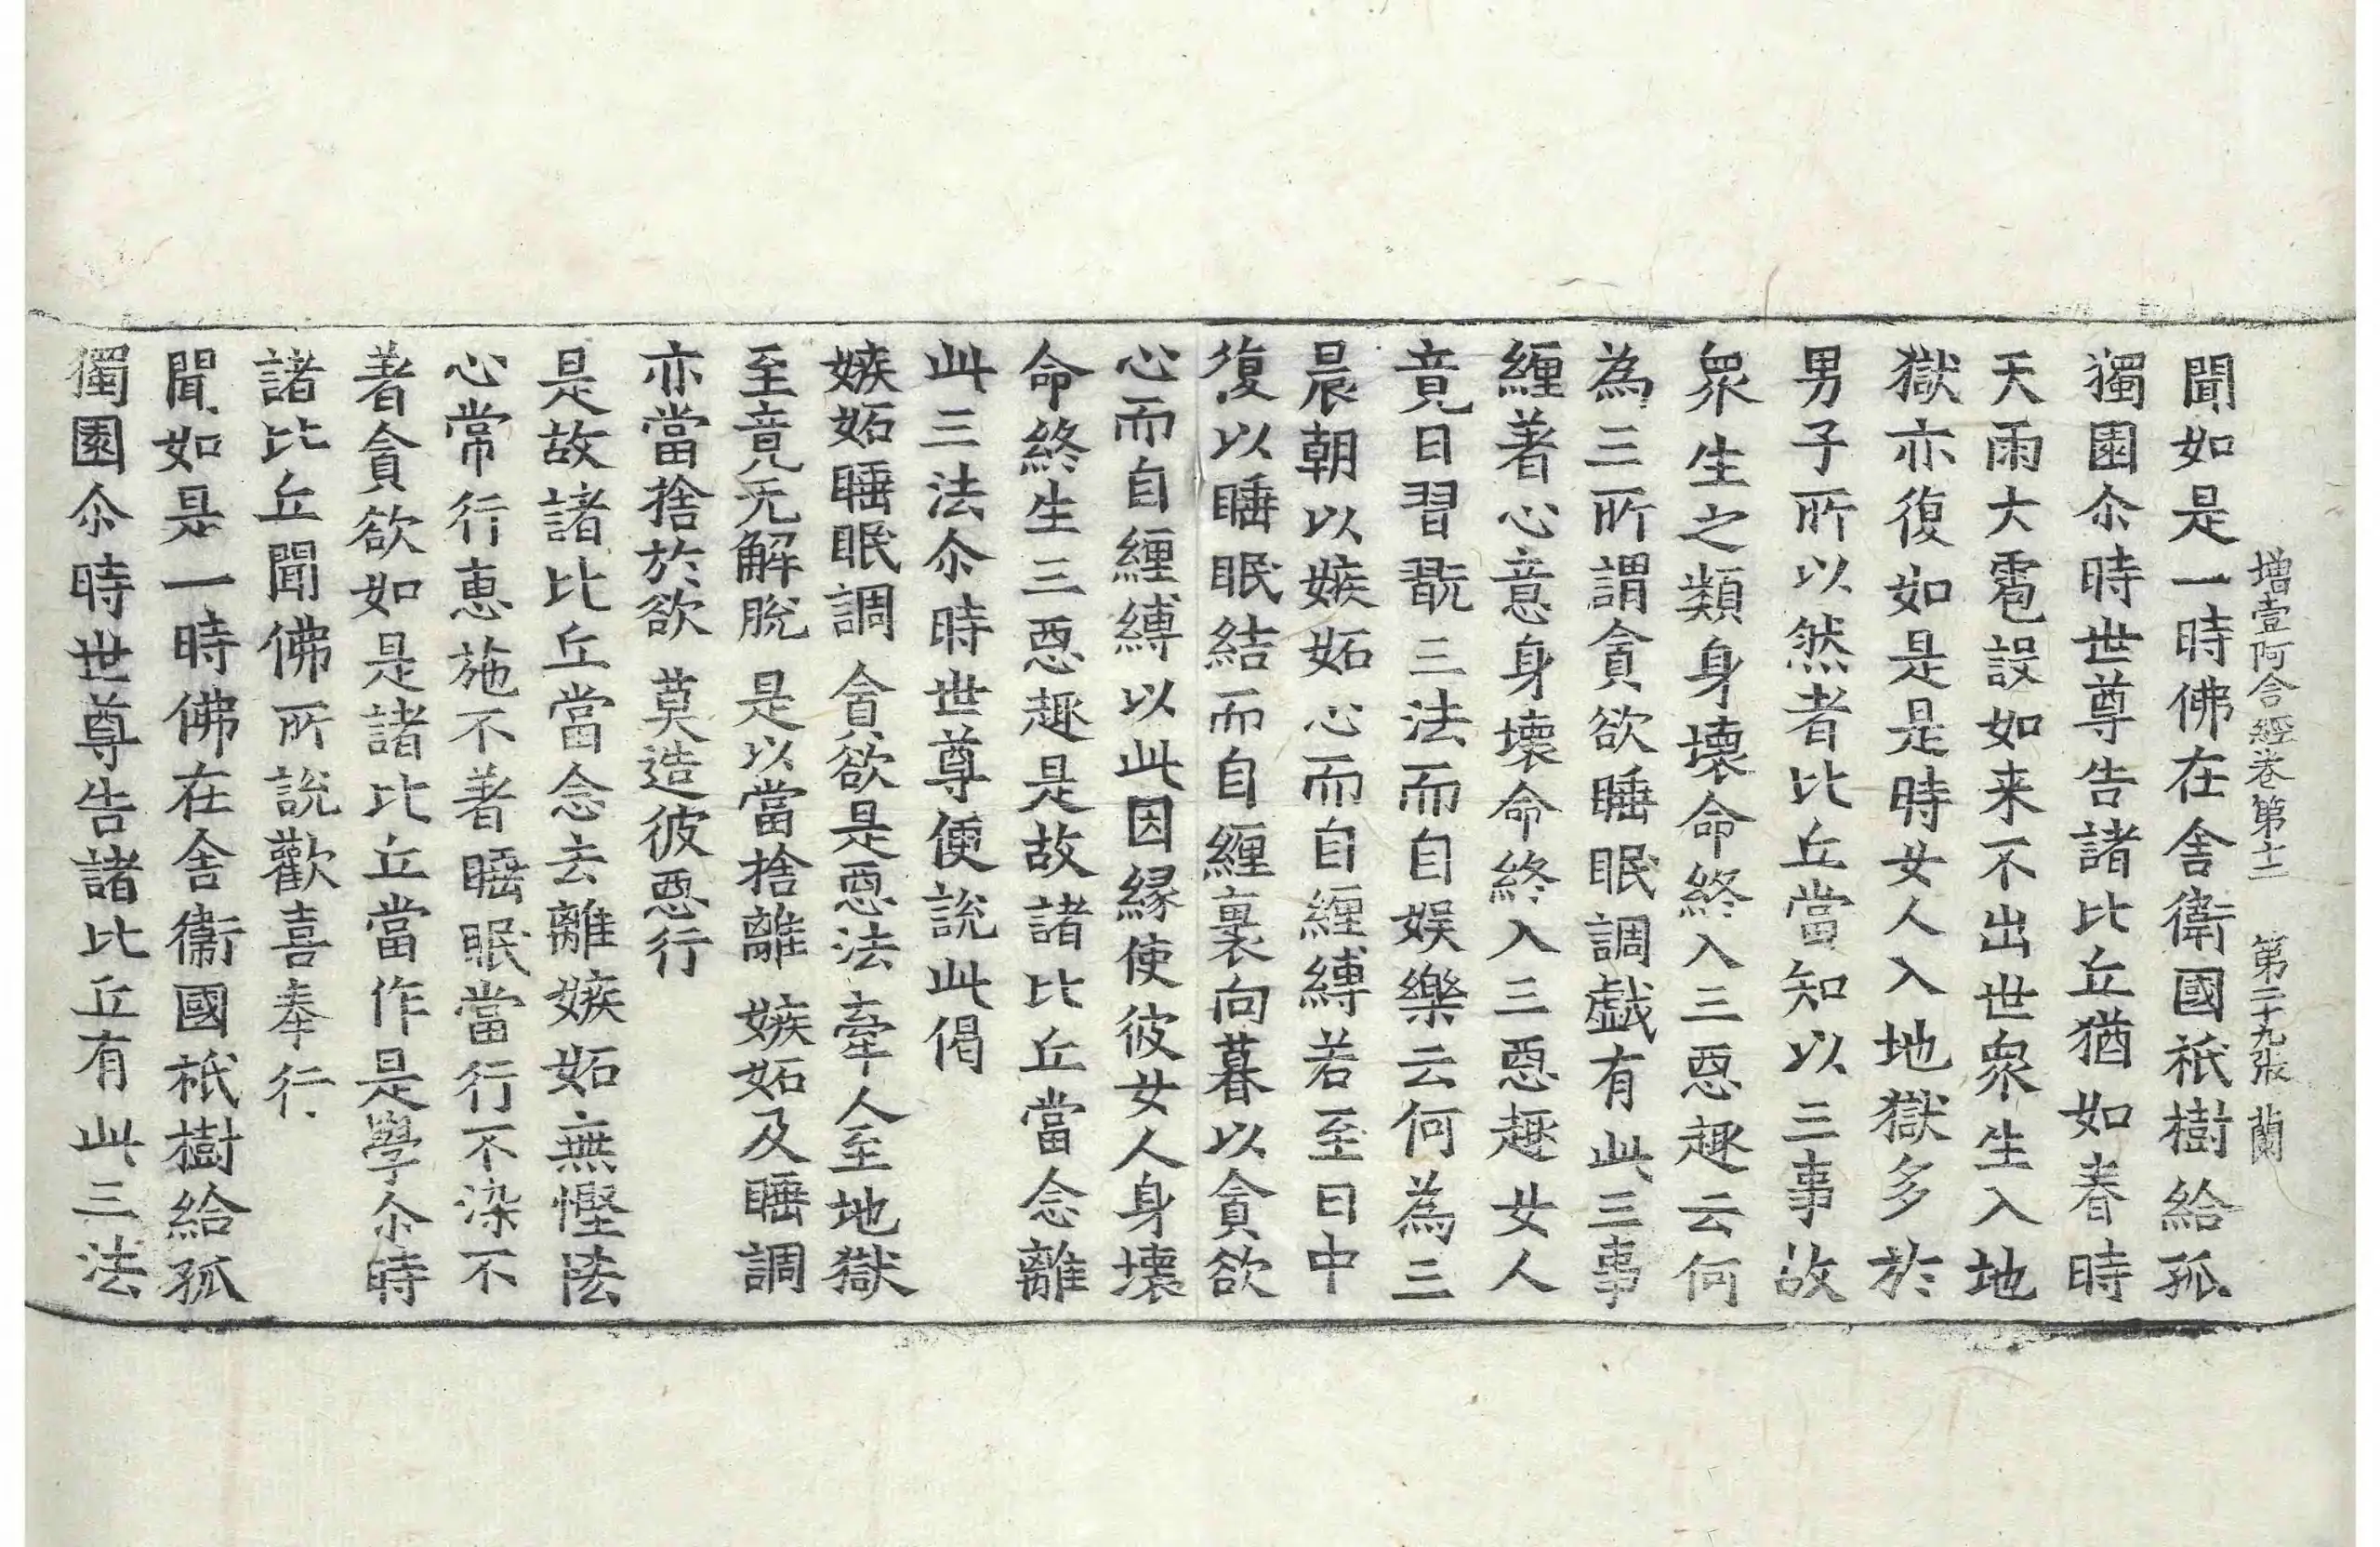 增壹阿含經卷第十二 第二十九張 蘭
聞如是一時佛在舍衛國祇樹給孤
獨園尒時世尊告諸比丘猶如春時
天雨大雹設如来不出世衆生入地
獄亦復如是是時女人入地獄多於
男子所以然者比丘當知以三事故
衆生之類身壞命終入三惡趣云何
為三所謂貪欲睡眠調戲有此三事
纏著心意身壞命終入三惡趣女人
竟日習翫三法而自娛樂云何為三
晨朝以嫉妬心而自纏縛若至日中
復以睡眠結而自纏裹向暮以貪欲
心而自纏縛以此因緣使彼女人身壞
命終生三惡趣是故諸比丘當念離
此三法尒時世尊便說此偈
嫉妬睡眠調 貪欲是惡法牽人至地獄
至竟无解脫 是以當捨離 嫉妬及睡調
亦當捨於欲 莫造彼惡行
是故諸比丘當念去離嫉妬無慳悋
心常行惠施不著睡眠當行不染不
著貪欲如是諸比丘當作是學尒時
諸比丘聞佛所說歡喜奉行
聞如是一時佛在舍衛國祇樹給孤
獨園尒時世尊告諸比丘有此三法